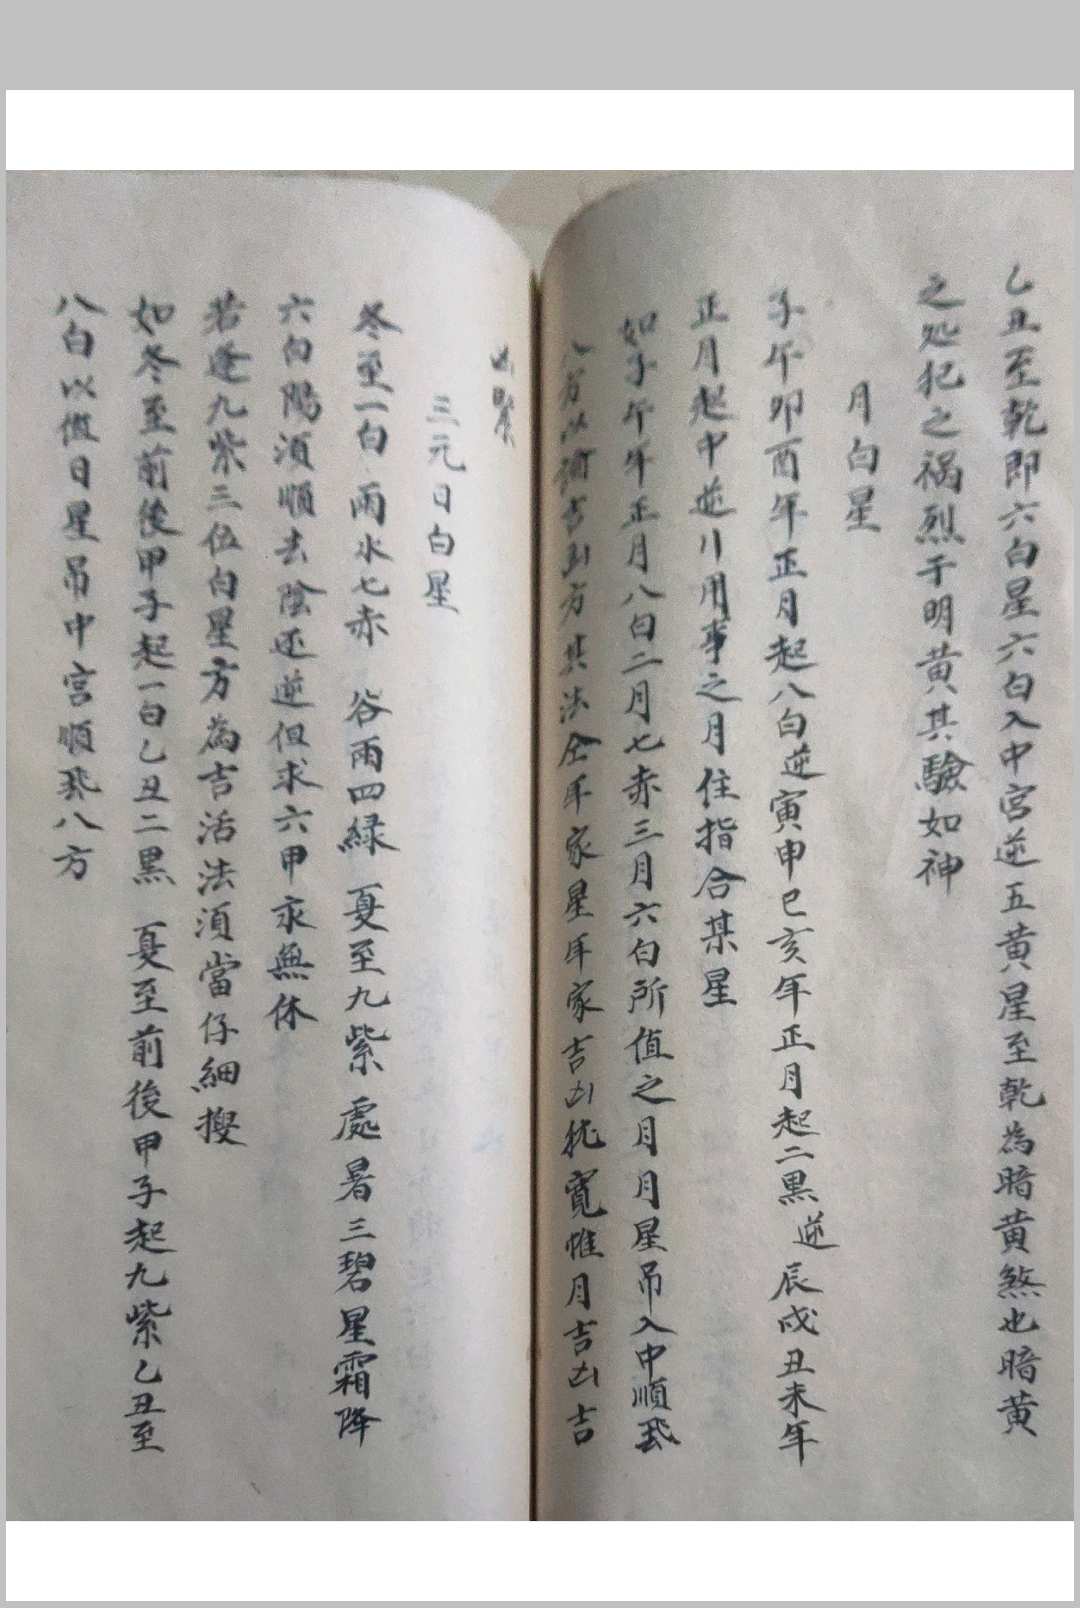 乙丑至乾即六白星六白入中宮逆五黄星至乾為暗黄煞也暗黄
之処犯之祸烈于明黄其驗如神
月白星
子午卯酉年正月起八白逆寅申巳亥年正月起二黑逆辰戌丑未年
正月起中逆川用事之月住指合某星
如子午年正月八白二月七赤三月六白所值之月月星吊入中順飛
八方以偹吉凶方其法仝年家星年家吉凶犹寛惟月吉凶吉
凶緊
三元日白星
冬至一白雨水七赤 谷雨四緑 夏至九紫 處暑三碧星霜降
六白陽湏順去陰还逆但求六甲永無休
若逢九紫三位白星方為吉活法湏當仔細搜
如冬至前後甲子起一白乙丑二黑 夏至前後甲子起九紫乙丑至
八白以值日星吊中宮順飛八方